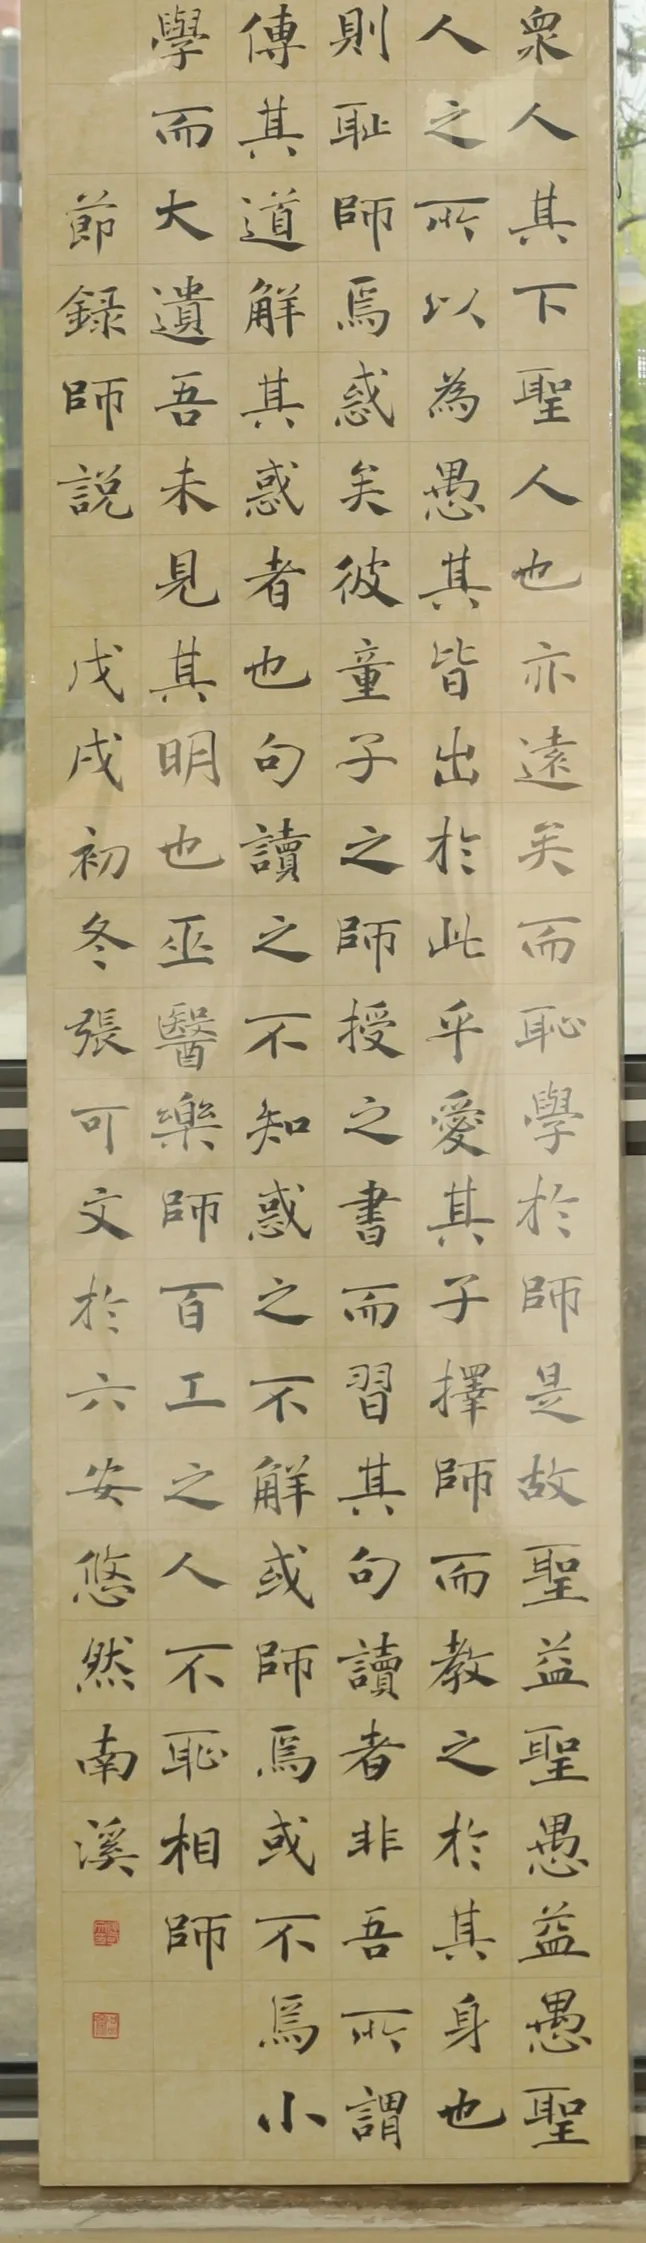 衆人其下聖人也亦遠矣而恥學於師是故聖益聖愚益愚聖
人之所以為愚其皆出於此乎愛其子擇師而教之於其身也
則恥師焉惑矣彼童子之師授之書而習其句讀者非吾所謂
傳其道解其惑者也句讀之不知惑之不解或師焉或不焉小
學而大遺吾未見其明也巫醫樂師百工之人不恥相師
節録師説 戊戌初冬張可文於六安悠然南溪